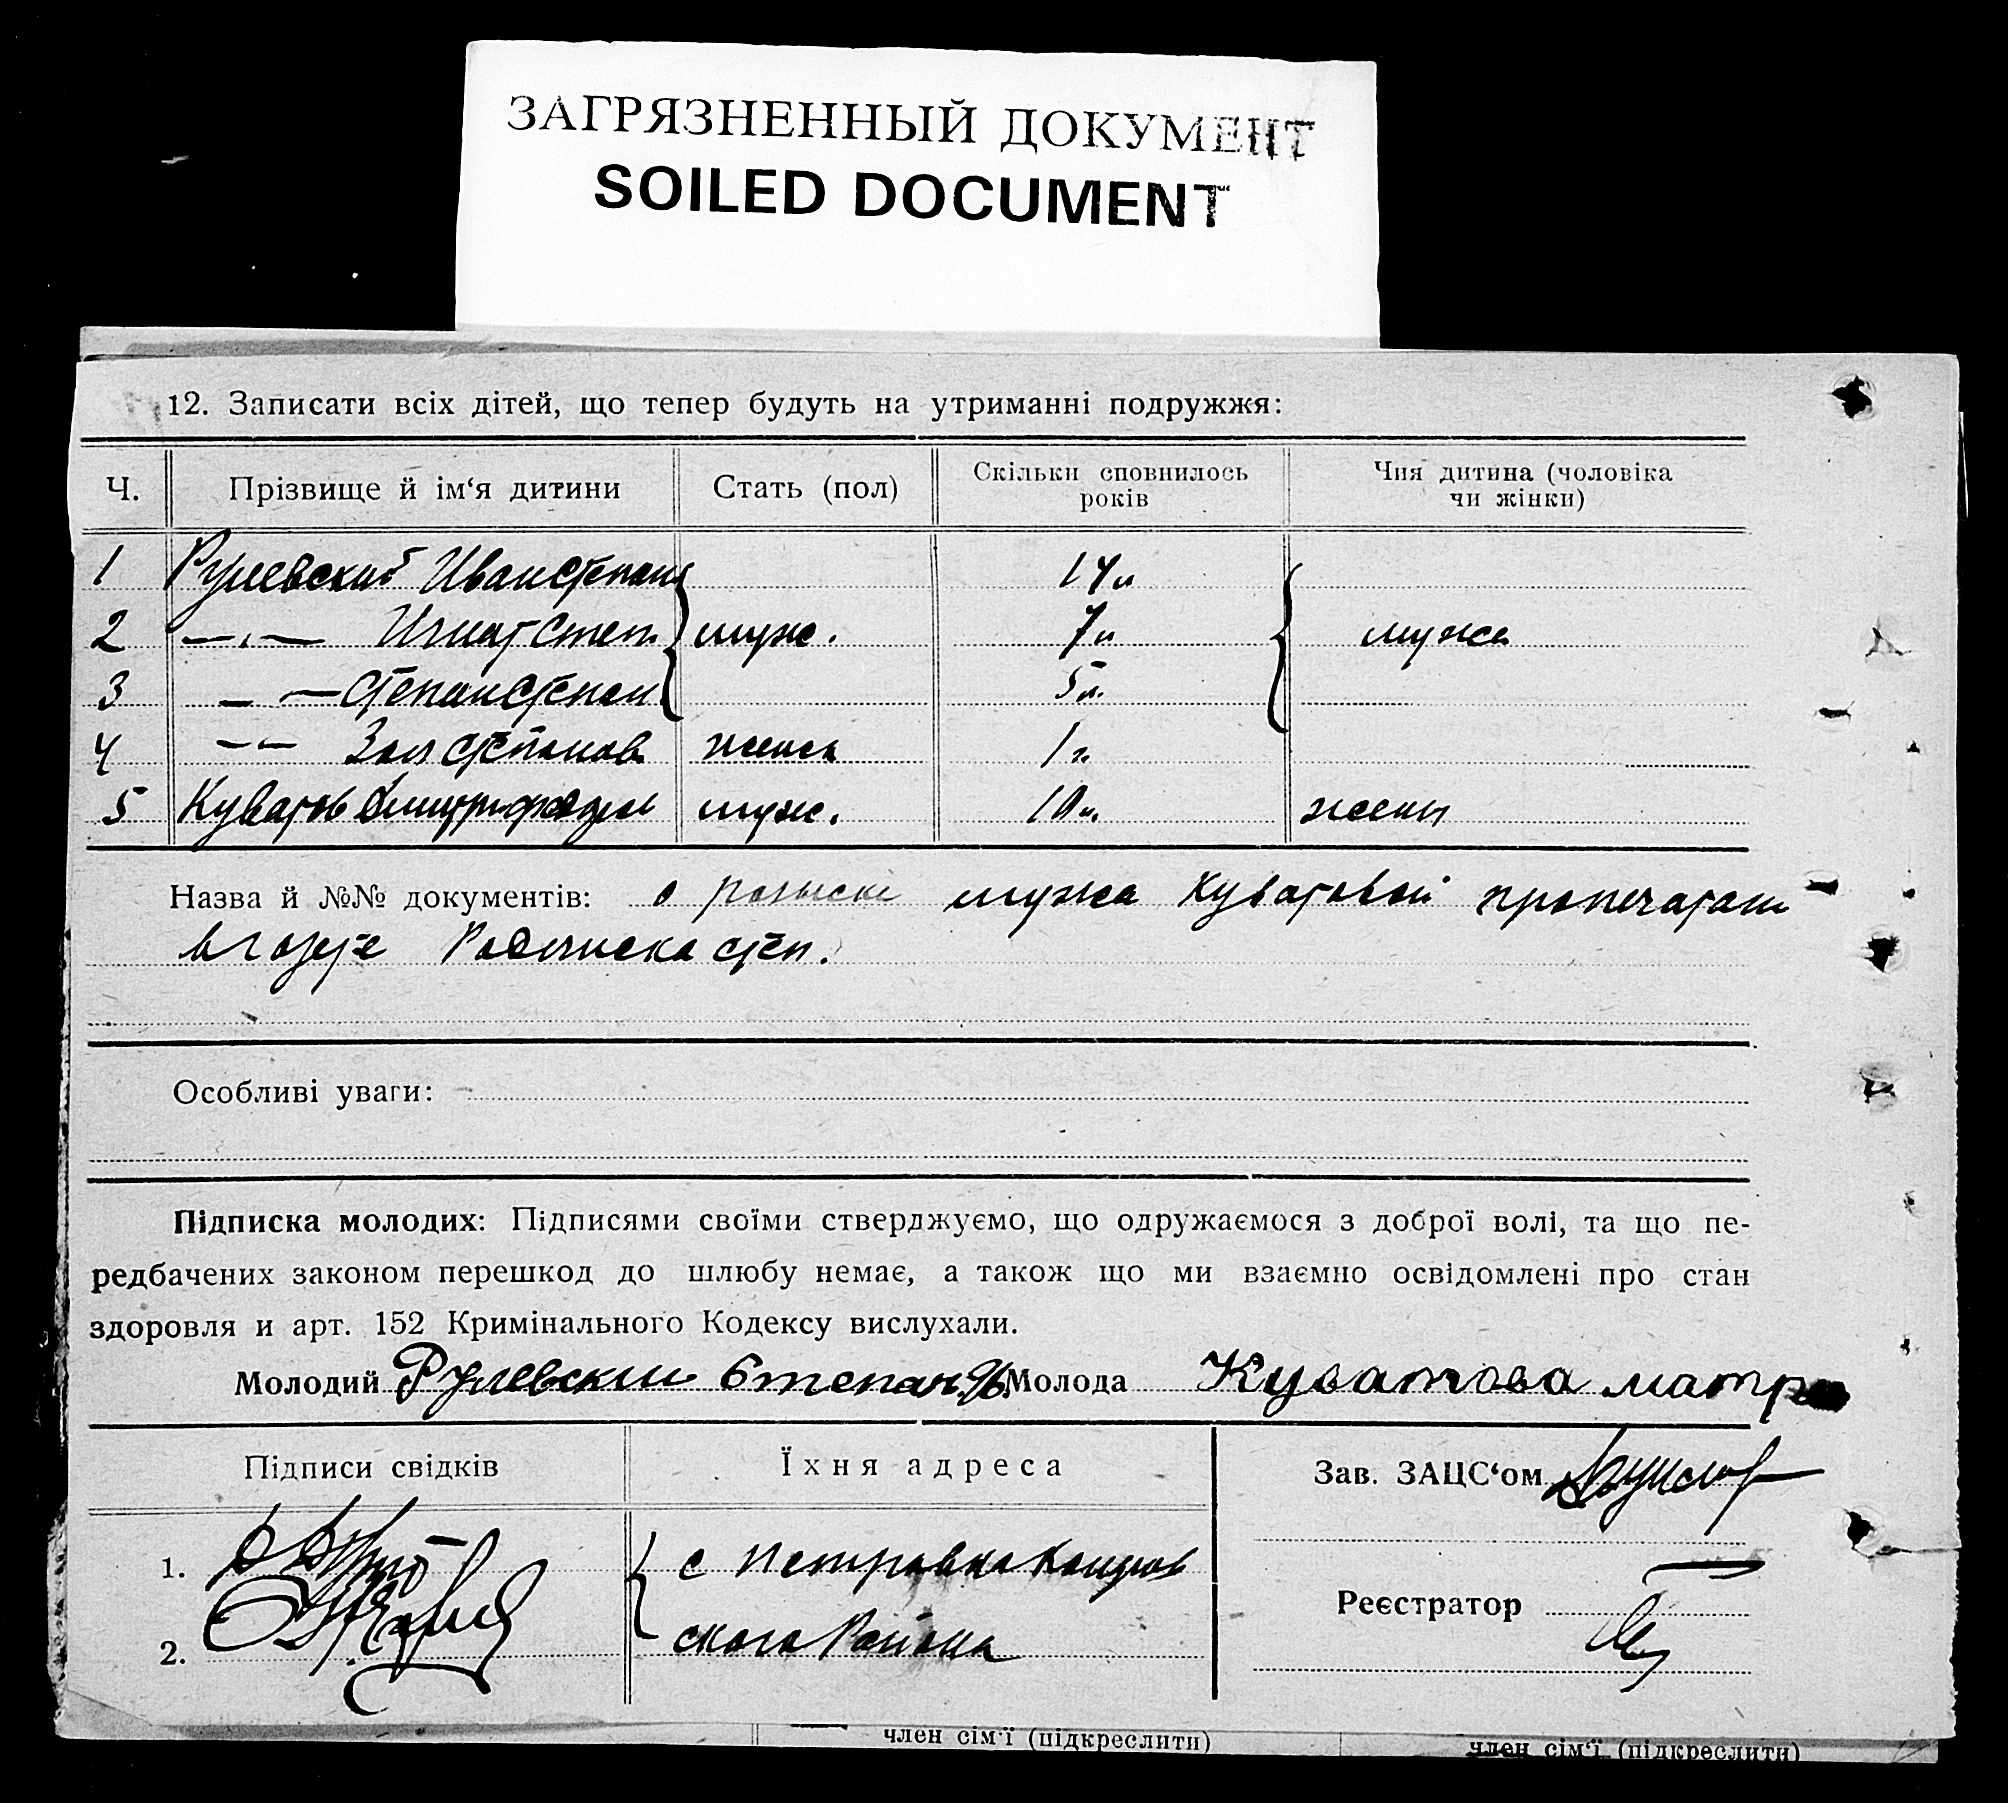 ЗАГРЯЗНЕННЫЙ ДОКУМЕНТ
SOILED DOCUMENT
12. Записати всіх дітей, що тепер будуть на утриманні подружжя:
Ч. Прізвище й ім‘я дитини Стать (пол) Скільки сповнилось років Чия дитина (чоловіка чи жінки)
1 Рулевский Иван Степан 14 л
2 —„— Игнат Степ. муж. 7 л мужа
3 —„— Степан Степан 5 л.
4 —„— Зоя Степанов. женск 1 г.
5 Куватов Дмитрий муж. 10 л. жены
Назва й №№ документів: о розыске мужа Куватовой пропечатано
в газете степ.
Особливі уваги:
Підписка молодих: Підписями своїми стверджуємо, що одружаємося з доброї волі, та що пе-
редбачених законом перешкод до шлюбу немає, а також що ми взаємно освідомлені про стан
здоровля и арт. 152 Кримінального Кодексу вислухали.
Молодий Рулевский Степан Молода Куватова матр
Підписи свідків Їхня адреса Зав. ЗАЦС‘ом
1. с Петровка
Реєстратор
2. ского Района
член сім‘ї (підкреслити) член сім‘ї (підкреслити)